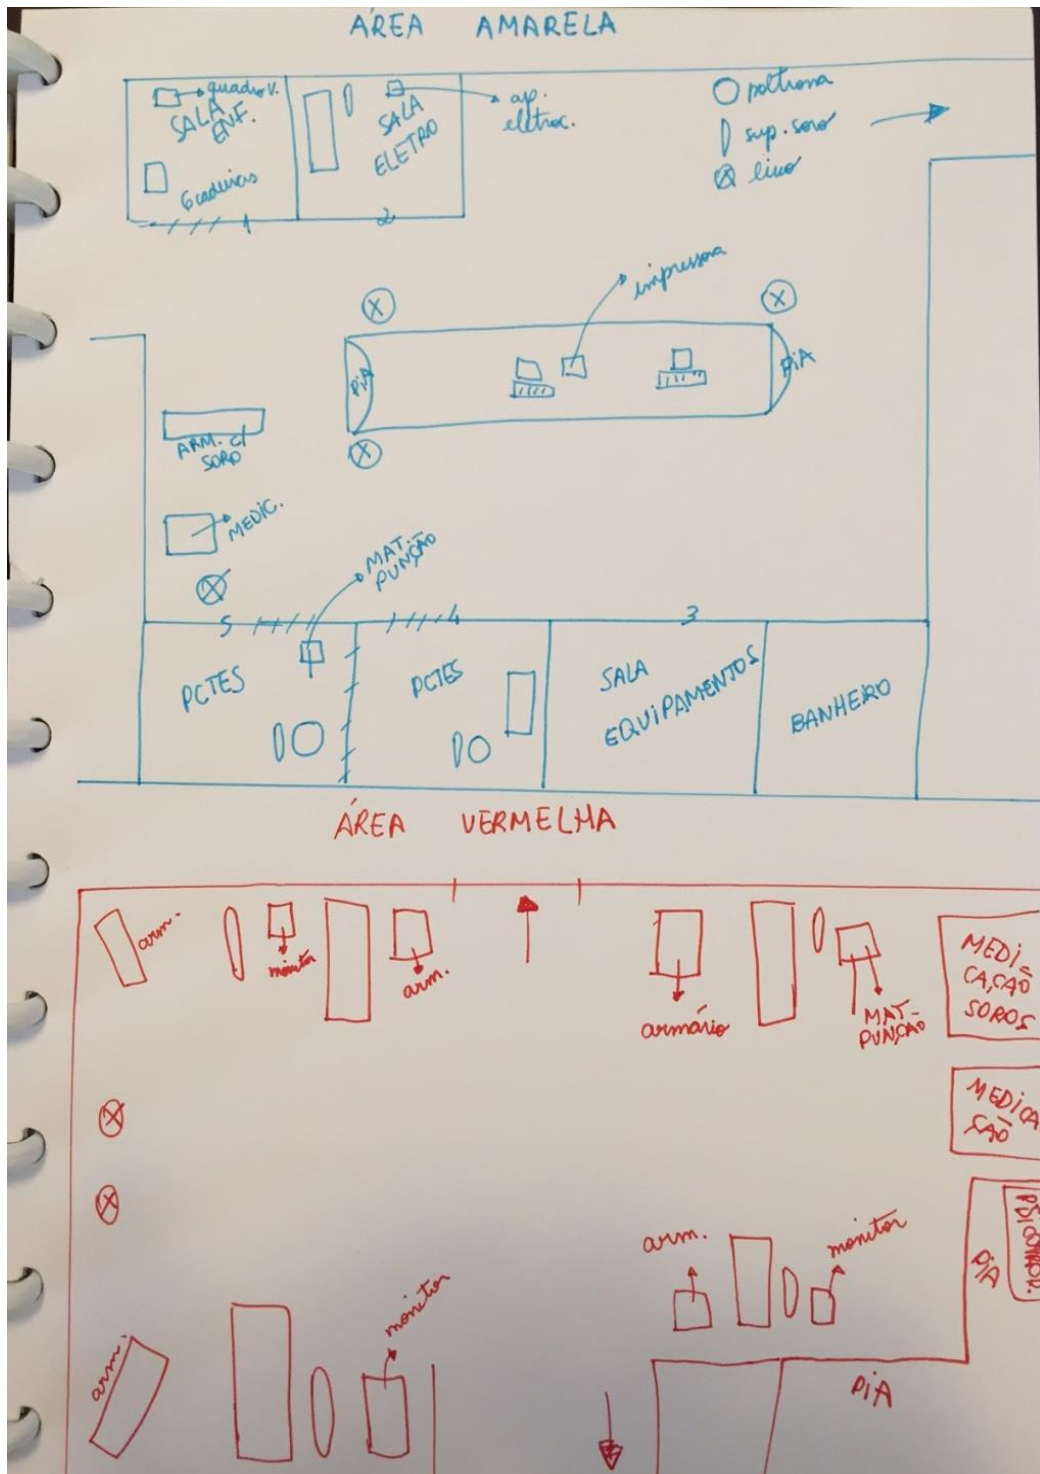 ÁREA AMARELA
quadro v.
SALA
ENF.
6 cadeiras
1
SALA
ELETRO
2
ap.
eletroc.
poltrona
sup. soro
lixo
impressora
X
X
PiA
PiA
X
ARM. c/
SORO
MEDIC.
X
MAT.
PUNÇÃO
5
4
3
PCTES
PCTES
SALA
EQUIPAMENTOS
BANHEIRO
ÁREA VERMELHA
arm.
monitor
arm.
armário
MAT-
PUNÇÃO
MEDi-
CAÇÃO
SOROS
X
X
MEDiCA
ÇÃO
arm.
monitor
PiA
arm.
monitor
PiA